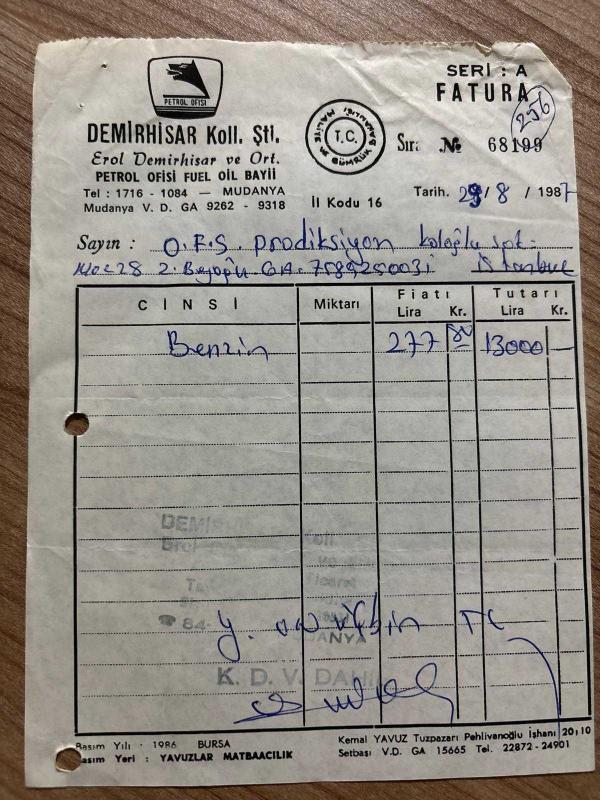 SERİ : A
FATURA
256
PETROL OFİSİ
DEMİRHİSAR Koll. Şti.
Erol Demirhisar ve Ort.
PETROL OFİSİ FUEL OİL BAYİİ
Tel : 1716 - 1084 — MUDANYA
Mudanya V. D. GA 9262 - 9318
T.C.
MALİYE ve GÜMRÜK BAKANLIĞI
İl Kodu 16
Sıra № 68199
Tarih. 29/8 / 1987
Sayın : O.F.S. prodiksiyon
2. Beyoğlu G.A. 7589250031 İstanbul
CİNSİ Miktarı Fiatı Lira Kr. Tutarı Lira Kr.
Benzin 277 13000 —
DEMİ
84-
K. D. V. DAHİL
Basım Yılı · 1986 BURSA
Basım Yeri : YAVUZLAR MATBAACILIK
Kemal YAVUZ Tuzpazarı Pehlivanoğlu İşhanı 20/10
Setbaşı V.D. GA 15665 Tel. 22872 - 24901